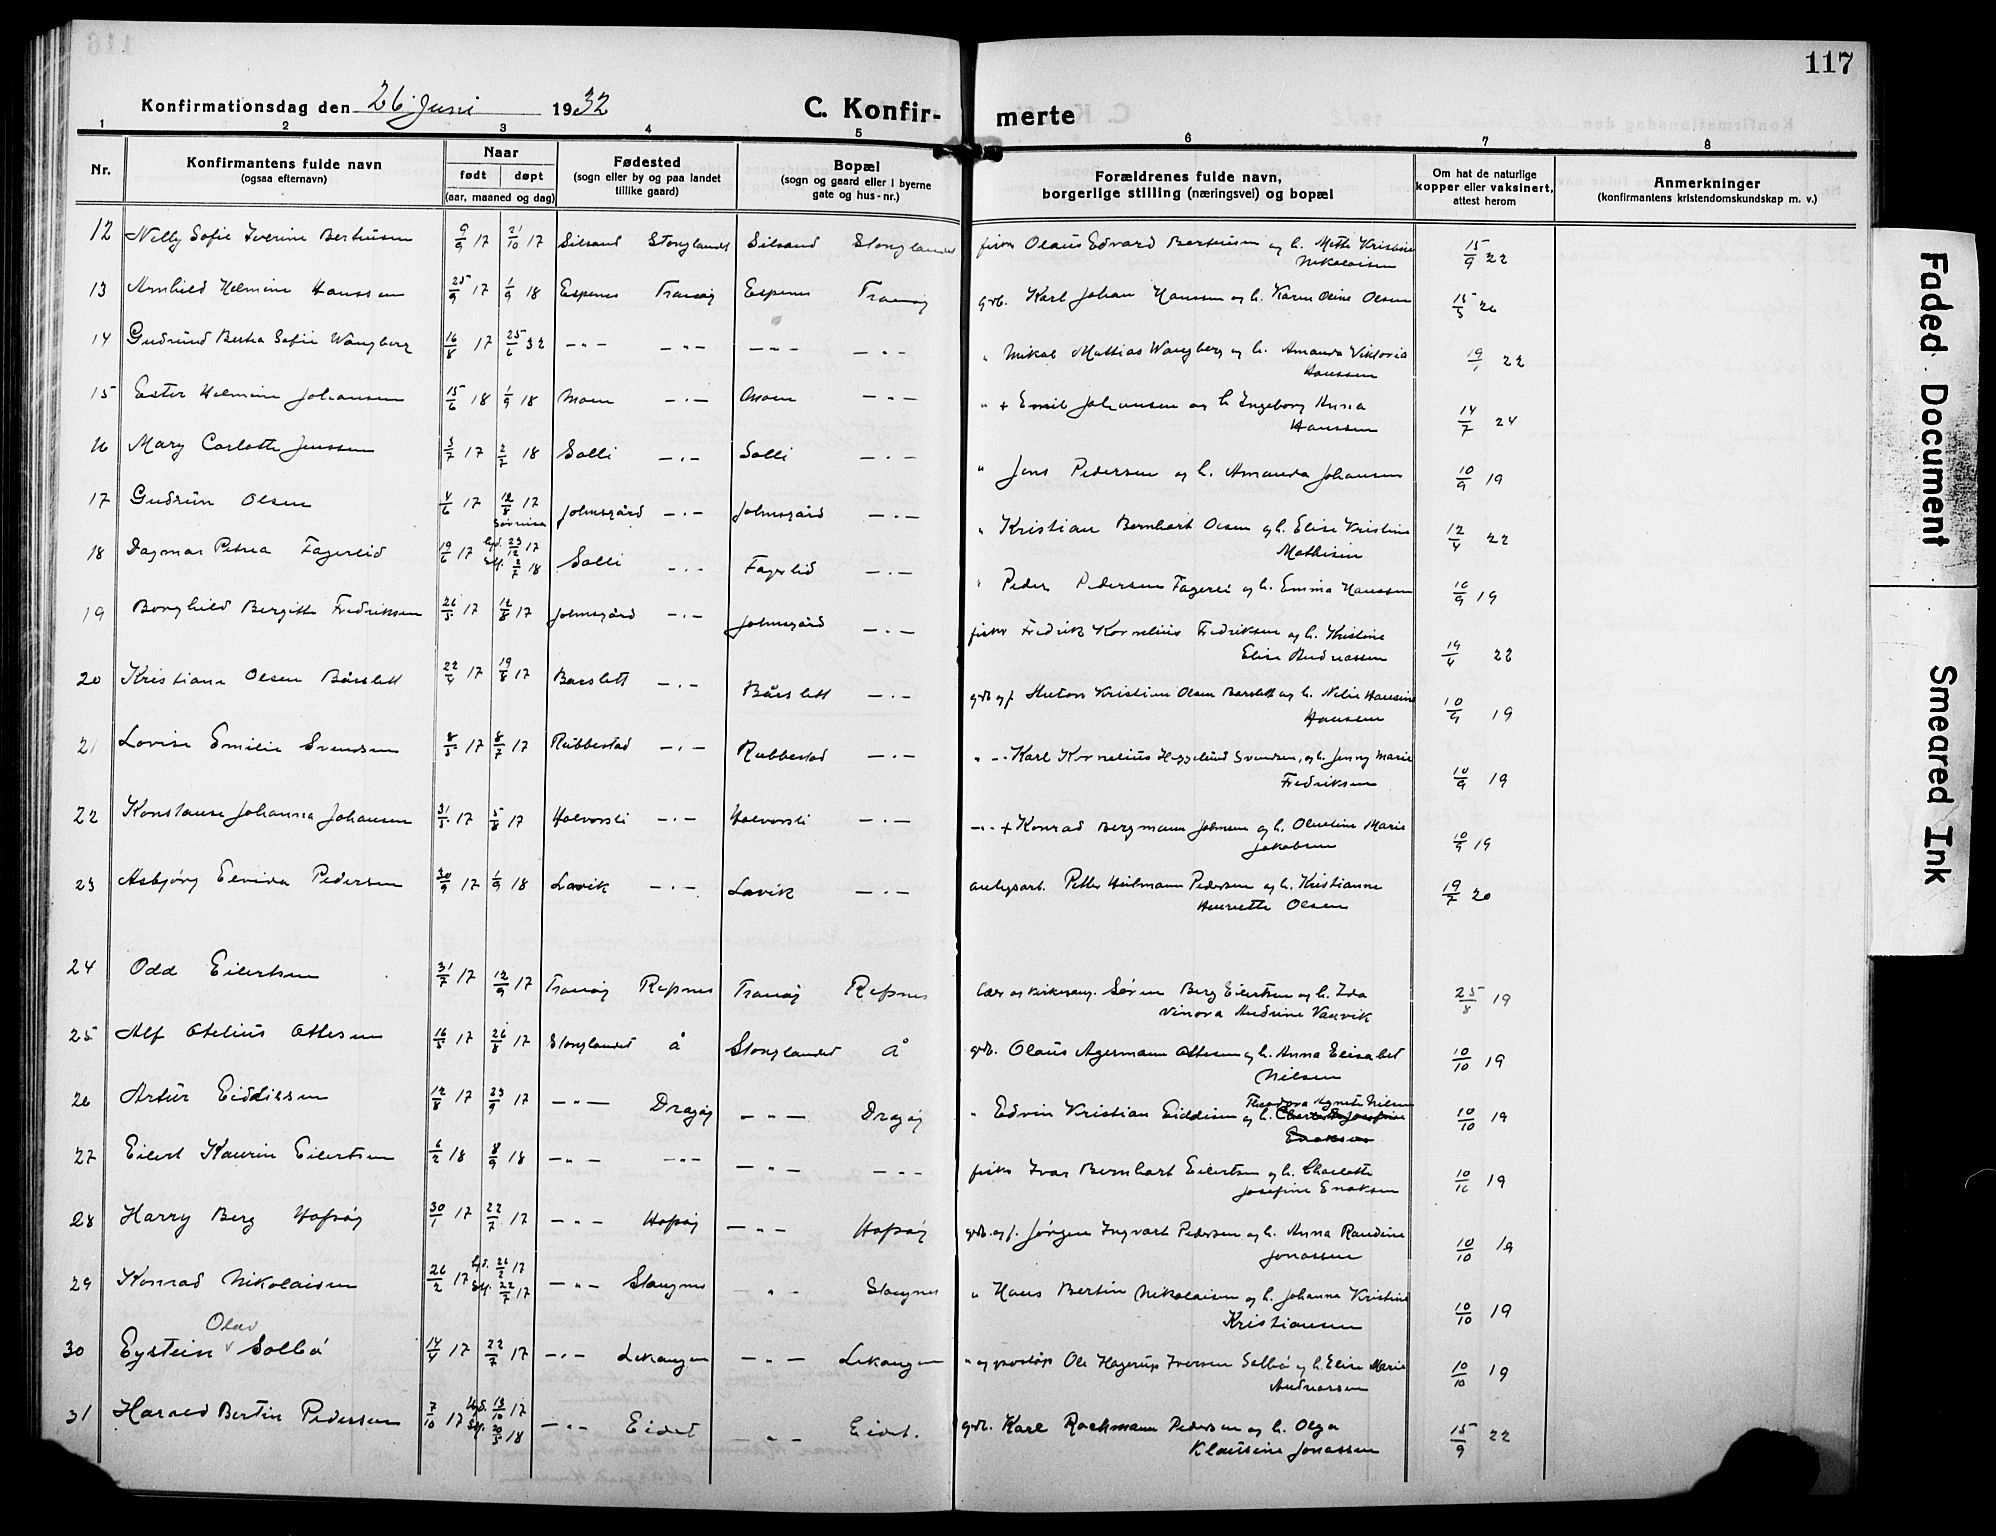 117
Konfirmationsdag den 26 Juni 1932
C. Konfirmerte
1 2 3 4 5 6 7 8
Nr.
Konfirmantens fulde navn
(ogsaa efternavn)
Naar
født døpt
(aar, maaned og dag)
Fødested
(sogn eller by og paa landet
tillike gaard)
Bopæl
(sogn og gaard eller i byerne
gate og hus-nr.)
Forældrenes fulde navn,
borgerlige stilling (næringsvei) og bopæl
Om hat de naturlige
kopper eller vaksinert,
attest herom
Anmerkninger
(konfirmantens kristendomskundskap m. v.)
12 Nelly Sofie Iverine Berteusen 9/9 17 21/10 17 Silsand Stonglandet Silsand Stonglandet fisker Olaus Edvard Berteusen og h. Mette Kristine
Nikolaisen 15/9 22
13 Arnhild Helmine Hanssen 25/9 17 1/9 18 Espenes Tranøy Espenes Tranøy grb. Karl Johan Hanssen og h. Karen Oline Olsen 15/5 26
14 Gudrund Bertra Sofie Wangberg 16/8 17 25/6 32 -"- -"- -"- -"- " Mikal Mattias Wangberg og h. Amanda Viktoria
Hanssen 19/1 22
15 Ester Helmine Johansen 15/6 18 1/9 18 Moen -"- Moen -"- " + Emil Johansen og h Ingeborg Anna
Hanssen 14/7 24
16 Mary Carlotte Jenssen 3/7 17 2/7 18 Solli -"- Solli -"- " Jens Pedersen og h. Amanda Johansen 10/9 19
17 Gudrun Olsen 4/6 17 12/8 17 Johnsgård -"- Johnsgård -"- " Kristian Bernhart Olsen og h. Elise Kristine
Mathisen 12/4 22
18 Dagmar Petrea Fagerlid 19/6 17 23/12 17 2/7 18 Solli -"- Fagerlid -"- " Peder Pedersen Fagerli og h. Emma Hanssen 10/9 19
19 Borghild Bergitte Fredriksen 26/5 17 12/8 17 Johnsgård -"- Johnsgård -"- fisker Fredrik Kornelius Fredriksen og h. Kristine
Elise Andreassen 14/4 22
20 Kristiane Olsen Bårslett 22/4 17 19/8 17 Barslett -"- Bårslett -"- grb og f. Anton Kristian Olsen Barslett og h. Nelie Hansine
Hansen 10/9 19
21 Lovise Emilie Svendsen 8/5 17 8/7 17 Rubbestad -"- Rubbestad -"- " -"- Karl Kornelius Heggelund Svendsen, og h. Jenny Marie
Fredriksen 10/9 19
22 Konstanse Johanna Johansen 31/5 17 5/8 17 Halvorsli -"- Halvorsli -"- -"- + Konrad Bergmann Johnsen og h. Oluttine Marie
Jakobsen 10/9 19
23 Asbjørg Elvida Pedersen 30/9 17 1/9 18 Lavik -"- Lavik -"- anlegsarb. Petter Heilmann Pedersen og h. Kristianne
Henriette Olsen 19/7 20
24 Odd Eilertsen 31/7 17 12/9 17 Tranøy Refsnes Tranøy Refsnes lær og kirkesang. Søren Berg Eilertsen og h. Ida
Vinora Andrine Vanvik 25/8 19
25 Alf Otelius Ottesen 16/5 17 26/8 17 Stonglandet Å Stonglandet Å grb. Olaus Agermann Ottesen og h. Anna Elisabet
Nilsen 10/10 19
26 Artur Eidissen 12/8 17 23/9 17 -"- Dragøy -"- Dragøy " Edvin Kristian Eidissen og h. Theodora Agnete Nilsen
10/10 19
27 Eilert Kaurin Eilertsen 6/2 18 8/9 18 -"- -"- -"- -"- fisker Ivar Bernhart Eilertsen og h. Charlotte
Josefine Enoksen 10/10 19
28 Harry Berg Hofsøy 30/1 17 22/7 17 -"- Hofsøy -"- Hofsøy grb. og f. Jørgen Ingvart Pedersen og h. Anna Randine
Jonassen 10/10 19
29 Konrad Nikolaisen 26/2 17 26/2 17 22/7 17 -"- Stangnes -"- Stangnes " Hans Bertin Nikolaisen og h. Johanna Kristine
Kristiansen 10/10 19
30 Eystein Olav Solbø 14/4 17 22/7 17 -"- Lekangen -"- Lekangen " og Ole Hagerup Iversen Solbø og h. Elise Marie
Andreassen 10/10 19
31 Harald Bertin Pedersen 7/10 17 13/10 17 20/5 18 -"- Eidet -"- Eidet. grb. Karl Rochmann Pedersen og h. Olga
Klausine Jonassen 15/9 22
Faded Document
Smeared Ink